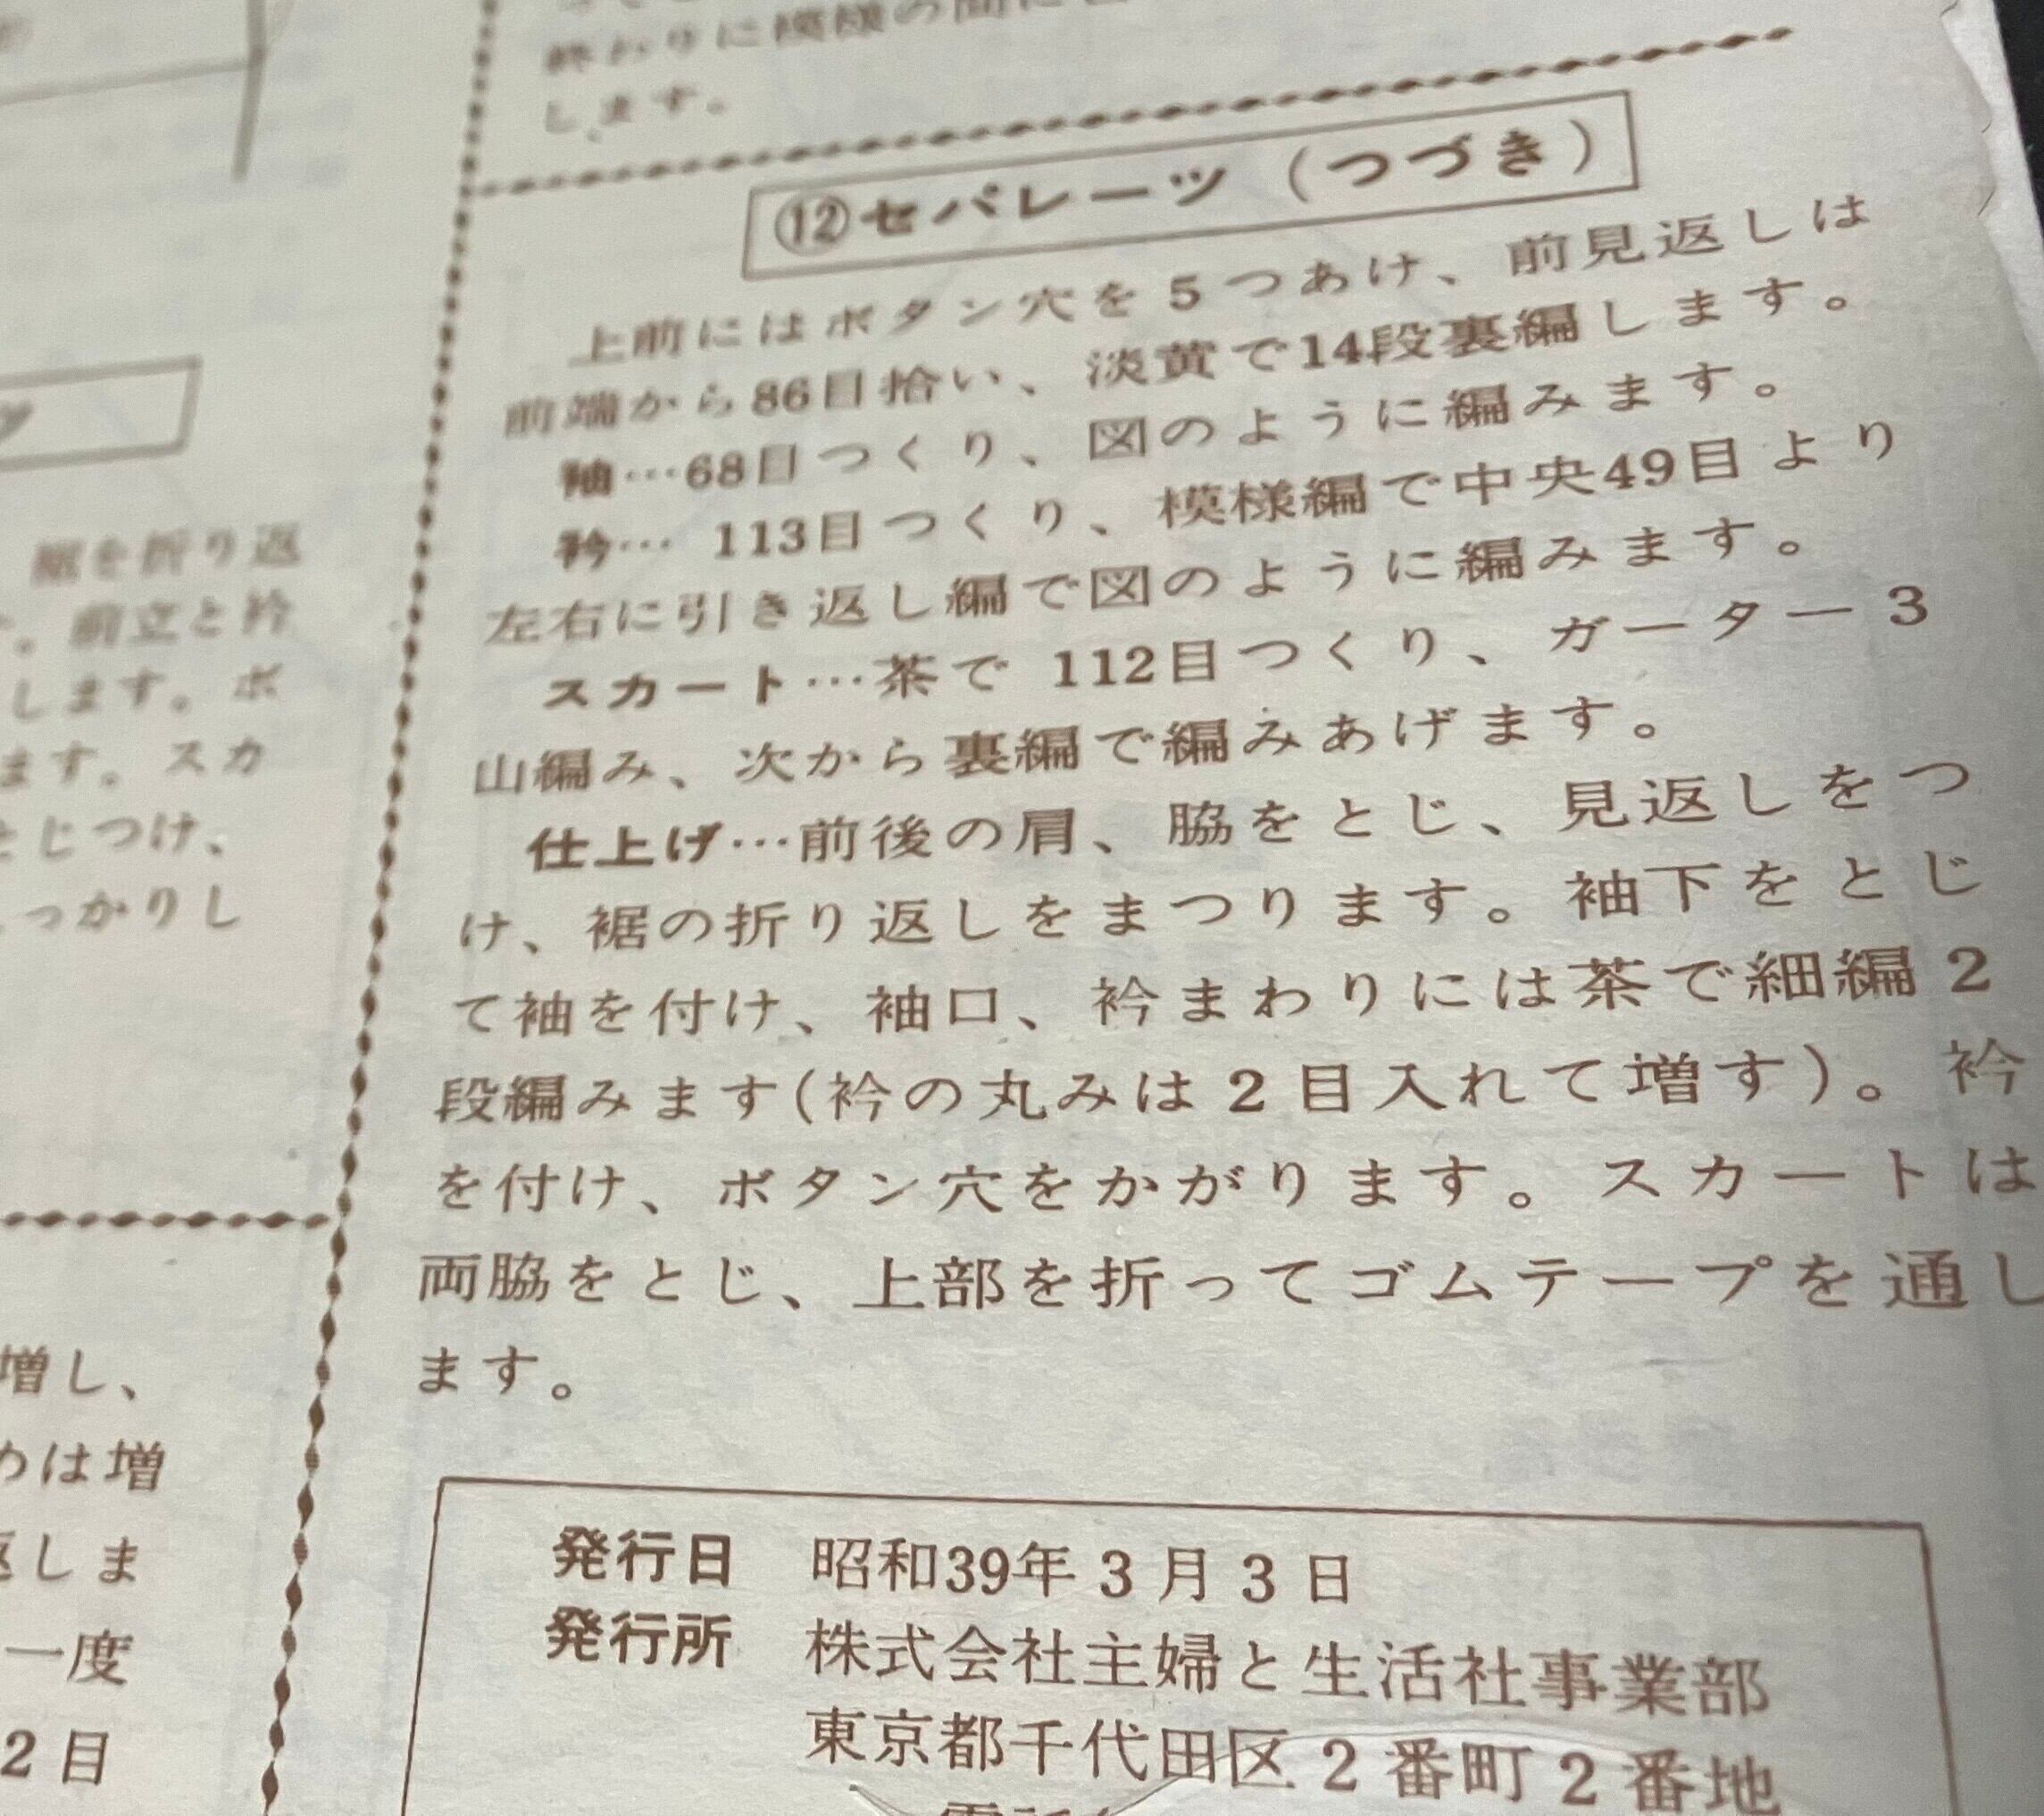 終わりに模様の間に
します。
ツ
裾を折り返
。前立と衿
します。ボ
ます。スカ
とじつけ、
っかりし
増し、
めは増
返しま
一度
2目
⑫セパレーツ（つづき）
上前にはボタン穴を5つあけ、前見返しは
前端から86目拾い、淡黄で14段裏編します。
袖…68目つくり、図のように編みます。
衿… 113目つくり、模様編で中央49目より
左右に引き返し編で図のように編みます。
スカート…茶で 112目つくり、ガーター3
山編み、次から裏編で編みあげます。
仕上げ…前後の肩、脇をとじ、見返しをつ
け、裾の折り返しをまつります。袖下をとじ
て袖を付け、袖口、衿まわりには茶で細編2
段編みます(衿の丸みは2目入れて増す)。衿
を付け、ボタン穴をかがります。スカートは
両脇をとじ、上部を折ってゴムテープを通し
ます。
発行日 昭和39年3月3日
発行所 株式会社主婦と生活社事業部
東京都千代田区2番町2番地